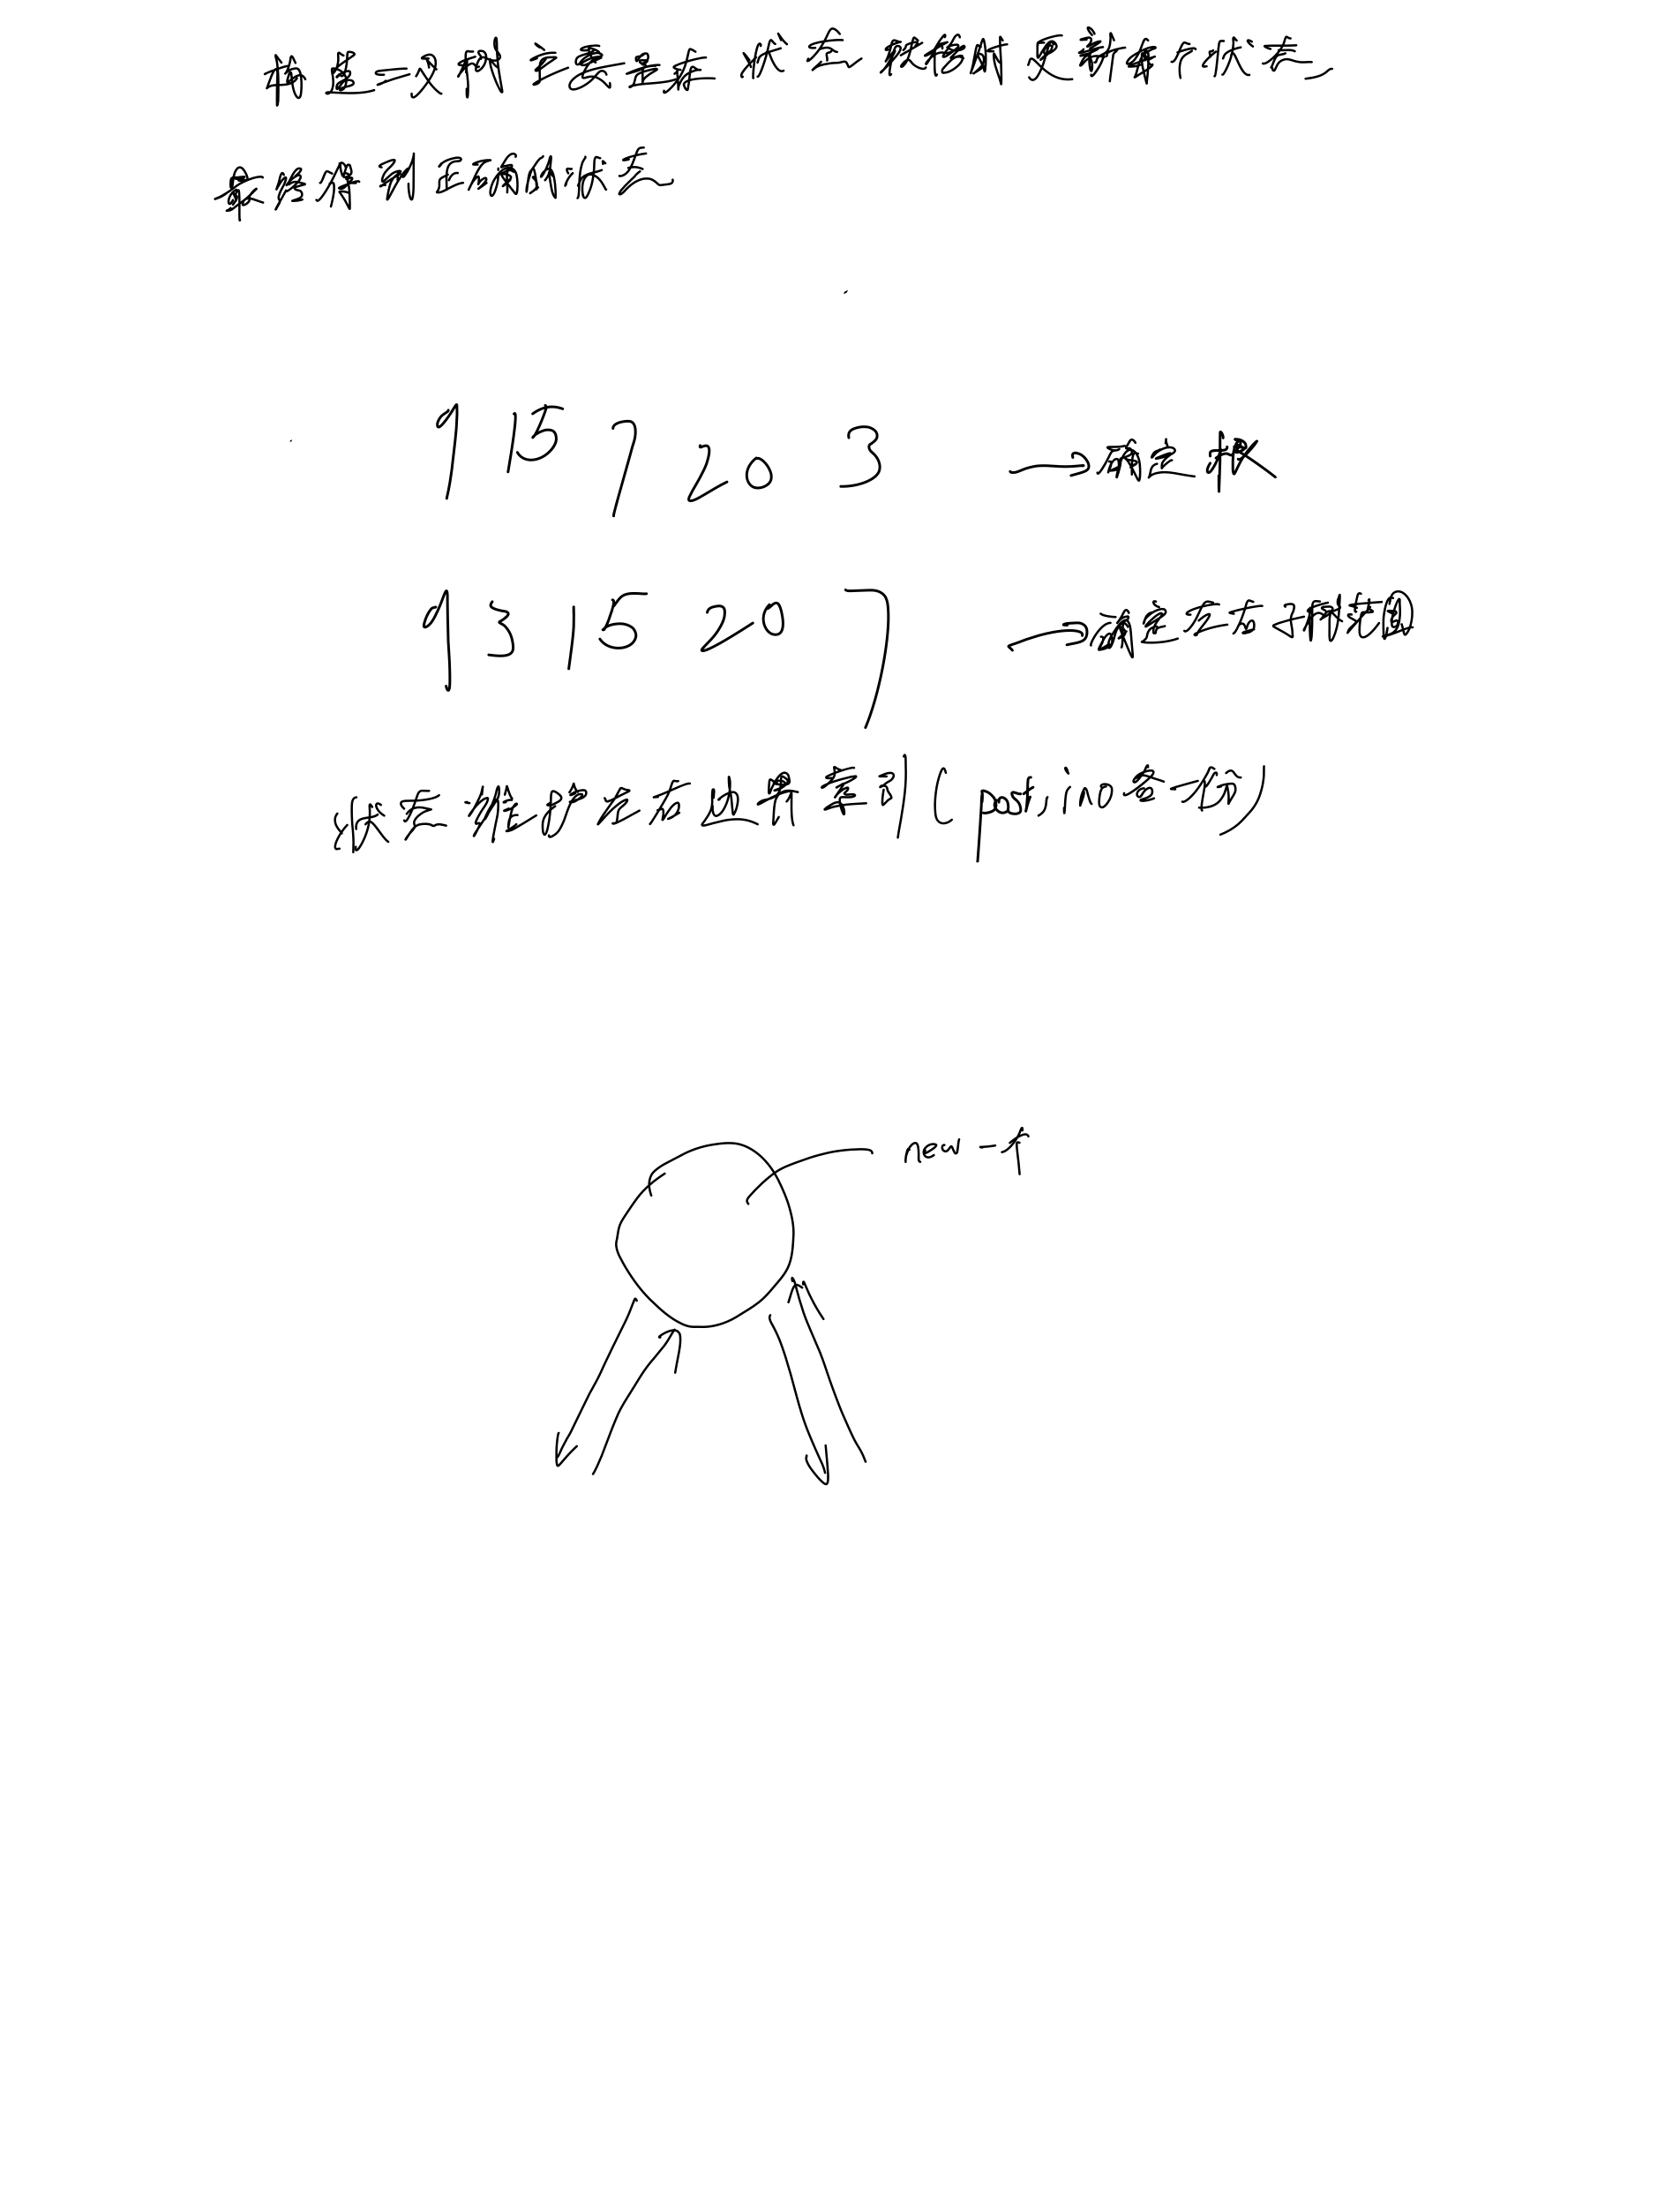 构造二叉树主要是在状态转移时更新每个状态
最终得到正确的状态
9 15 7 20 3 →确定根
9 3 15 20 7 →确定左右子树范围
状态维护左右边界索引(post,ino各一份)
new-f